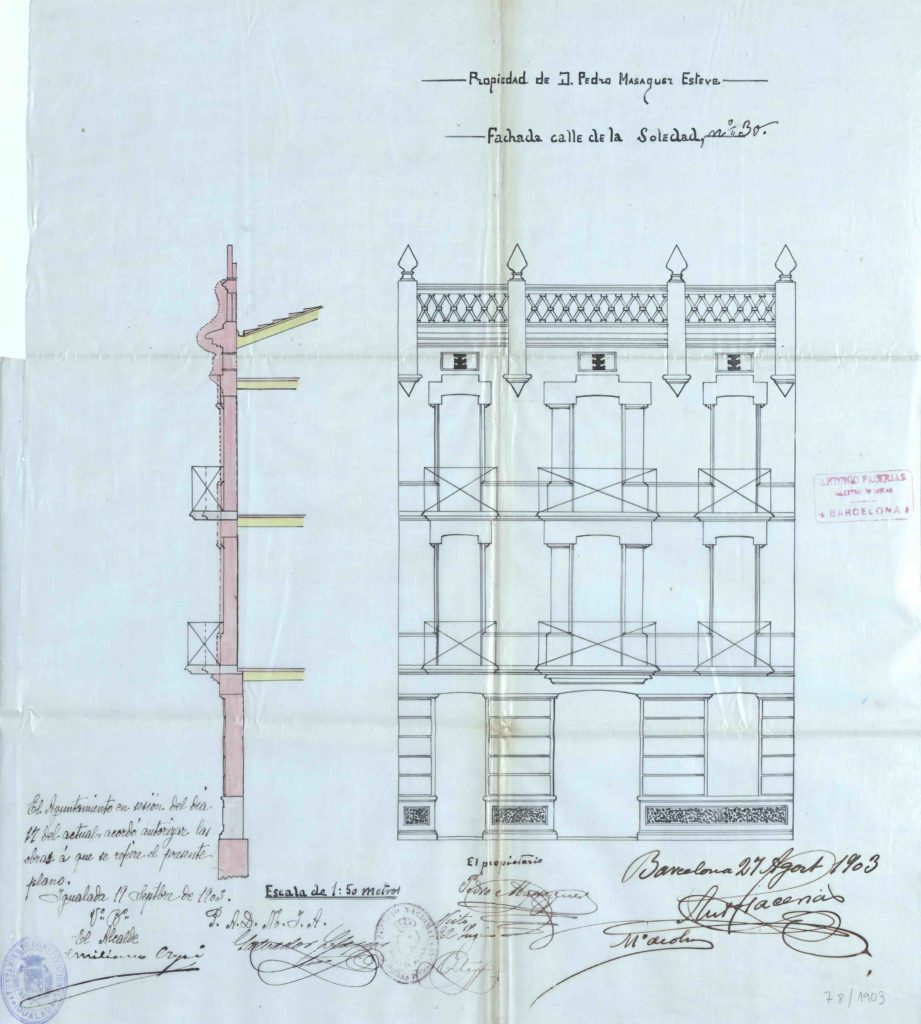 Propiedad de D. Pedro Masaguer Esteve.
Fachada calle de la Soledad, nº 30.
ANTONIO FACERIAS
MAESTRO DE OBRAS
BARCELONA
El Ayuntamiento en sesion del dia
17 del actual, acordó autorizar las
obras á que se refiere el presente
plano.
Igualada 19 Septbre de 1903.
Vº Bº
El Alcalde
Emiliano
P. A. D. M. I. A.
Escala de 1:50 metros
El propietario
Pedro Masaguer
Barcelona 27 Agost 1903
Ant Facerias
Mº de obs
AYUNTAMIENTO CONSTITUCIONAL
IGUALADA
78/1903